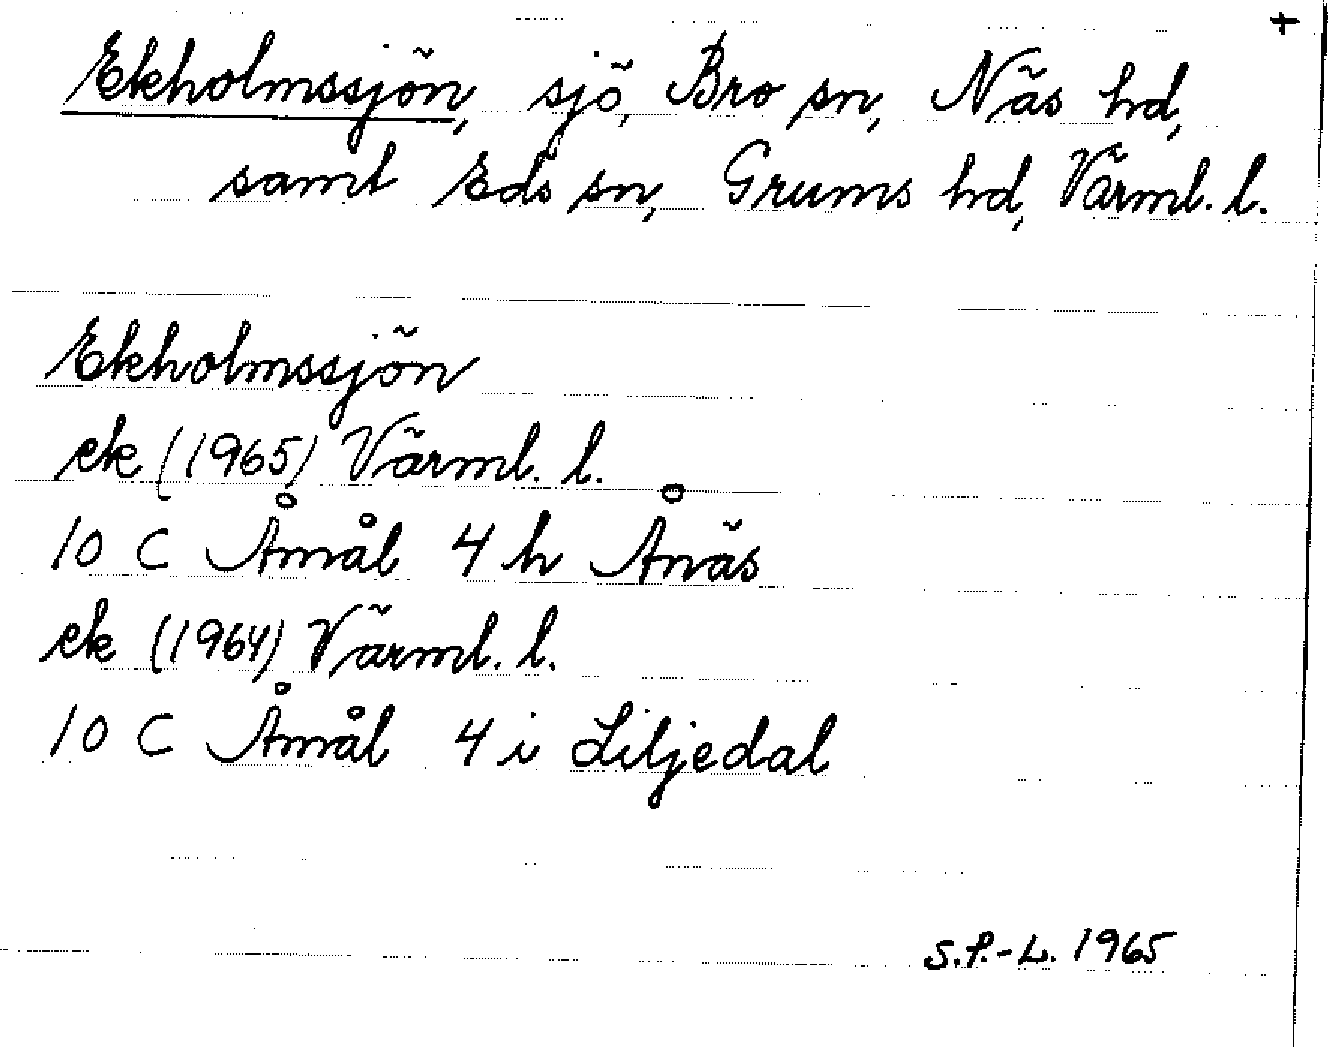 +
Ekholmssjön, sjö, Bro sn, Näs hd,
samt Eds sn, Grums hd, Värml. l.
Ekholmssjön
ek (1965) Värml. l.
10 C Åmål 4 h Ånäs
ek (1964) Värml. l.
10 C Åmål 4 i Liljedal
S.P.-L. 1965